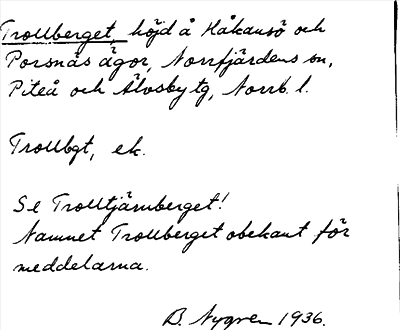 Trollberget, höjd å Håkansö och
Porsnäs ägor, Norrfjärdens sn,
Piteå och Älvsby tg, Norrb. l.
Trollbgt, ek.
Se Trolltjärnberget!
Namnet Trollberget obekant för
meddelarna.
B. Nygren 1936.